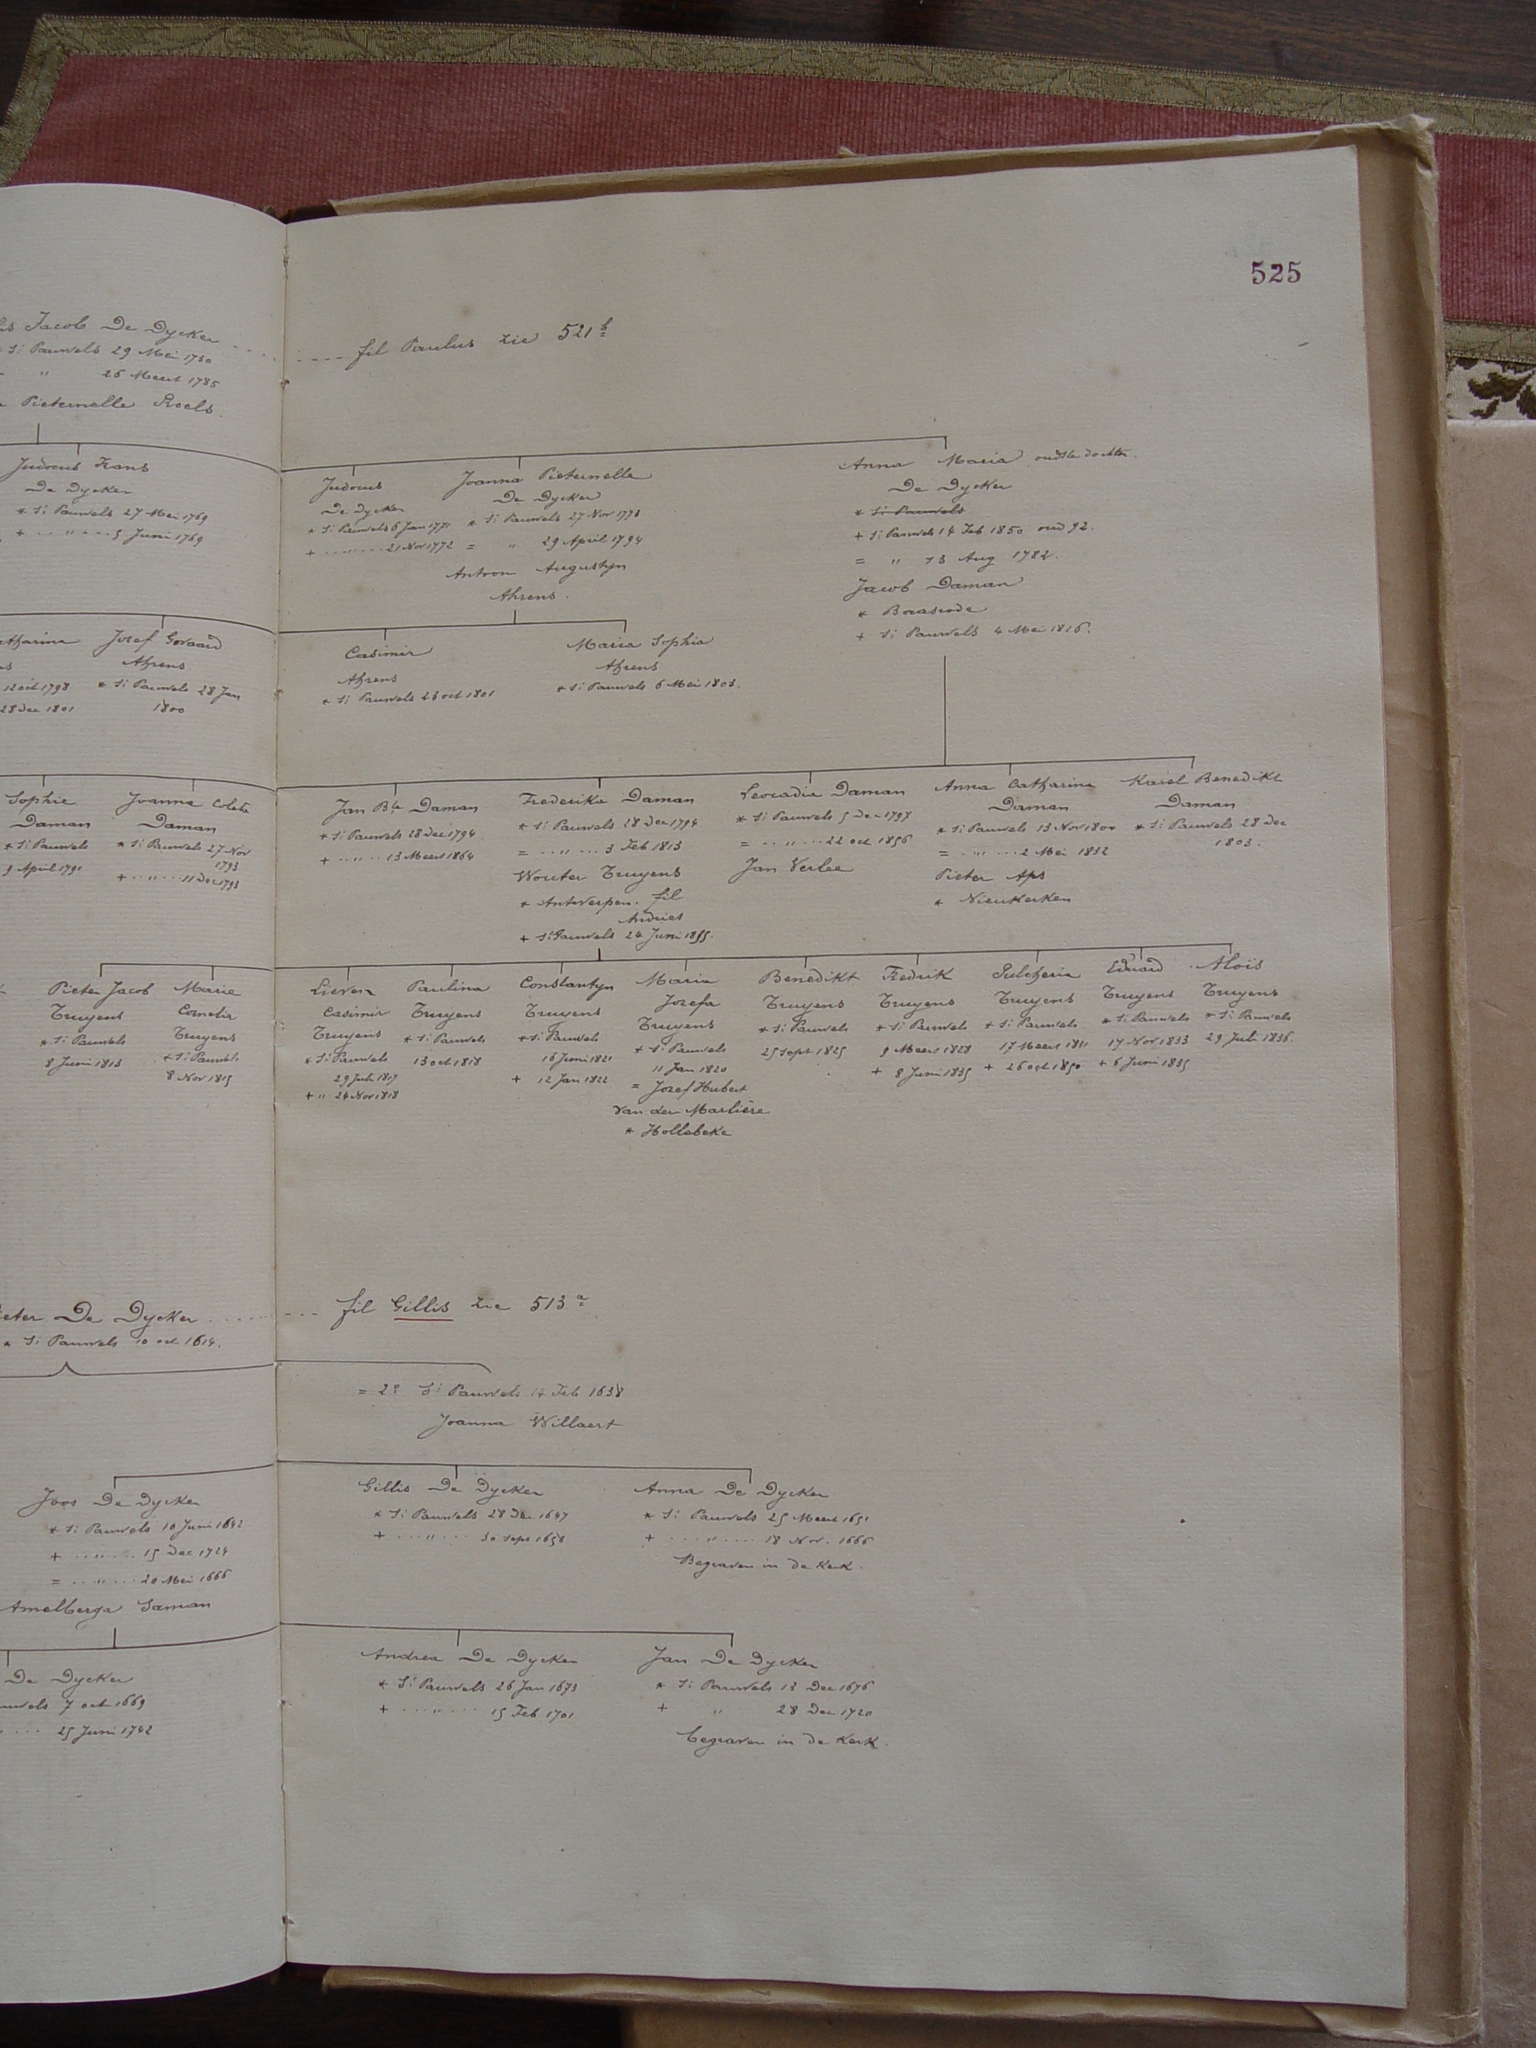 525
Jacob De Dycker
St Pauwels 29 Mei 1730
" 26 Meert 1785
Pieternelle Roels.
fil Paulus zie 521 b
Judocus Frans
De Dycker
* St Pauwels 27 Mei 1769
+ " 5 Juni 1769
Judocus
De Dycker
* St Pauwels 6 Jan 1771
+ " 21 Nov 1772
Joanna Pieternelle
De Dycker
* St Pauwels 27 Nov 1773
= " 29 April 1794
Antoon Augustyn
Ahrens.
Anna Maria oudste dochter.
De Dycker
* St Pauwels
+ St Pauwels 14 Feb 1850 oud 92.
= " 13 Aug 1782.
Jacob Daman
* Baasrode
+ St Pauwels 4 Mei 1816.
Catharina
12 oct 1798
28 Dec 1801
Jozef Govaard
Ahrens
* St Pauwels 28 Jan
1800
Casimir
Ahrens
* St Pauwels 23 oct 1801
Maria Sophia
Ahrens
* St Pauwels 6 Mei 1803.
Sophie
Daman
* St Pauwels
9 April 1791
Joanna Coleta
Daman
* St Pauwels 27 Nov
1793
+ " 11 Dec 1793
Jan Bte Daman
* St Pauwels 28 Dec 1794
+ " 13 Meert 1864
Frederika Daman
* St Pauwels 28 Dec 1794
= " 3 Feb 1813
Wouter Truyens
* Antwerpen. fil
Andries
+ St Pauwels 24 Juni 1855.
Leocadia Daman
* St Pauwels 5 Dec 1797
= " 22 oct 1856
Jan Verlee
Anna Catharina
Daman
* St Pauwels 13 Nov 1800
= " 2 Mei 1832
Pieter Aps
* Nieukerken
Karel Benedikt
Daman
* St Pauwels 28 Dec
1803.
Pieter Jacob
Truyens
* St Pauwels
8 Juni 1813
Marie
Cornelia
Truyens
* St Pauwels
8 Nov 1815
Lieven
Casimir
Truyens
* St Pauwels
29 Juli 1817
+ " 24 Nov 1818
Paulina
Truyens
* St Pauwels
13 oct 1818
Constantyn
Truyens
* St Pauwels
16 Juni 1821
+ 12 Jan 1822
Maria
Jozefa
Truyens
* St Pauwels
11 Jan 1820
= Jozef Hubert
Van der Marlière
* Hollebeke
Benedikt
Truyens
* St Pauwels
25 Sept 1825
Fredrik
Truyens
* St Pauwels
9 Meert 1828
+ 8 Juni 1835
Pulcheria
Truyens
* St Pauwels
17 Meert 1831
+ 26 oct 1850
Eduard
Truyens
* St Pauwels
17 Nov 1833
+ 6 Juni 1835
Aloïs
Truyens
* St Pauwels
29 Juli 1836.
Pieter De Dycker
* St Pauwels 10 oct 1614.
fil Gillis zie 513 a
= 2e St Pauwels 14 Feb 1638
Joanna Willaert
Joos De Dycker
* St Pauwels 10 Juni 1642
+ " 15 Dec 1724
= " 20 Mei 1666
Amelberga Saman
Gillis De Dycker
* St Pauwels 28 Dec 1647
+ " 30 Sept 1658
Anna De Dycker
* St Pauwels 25 Meert 1651
+ " 18 Nov. 1666
Begraven in de Kerk.
De Dycker
Pauwels 7 oct 1669
25 Juni 1742
Andrea De Dycker
* St Pauwels 26 Jan 1673
+ " 15 Feb 1701
Jan De Dycker
* St Pauwels 13 Dec 1676
+ " 28 Dec 1720
begraven in de Kerk.